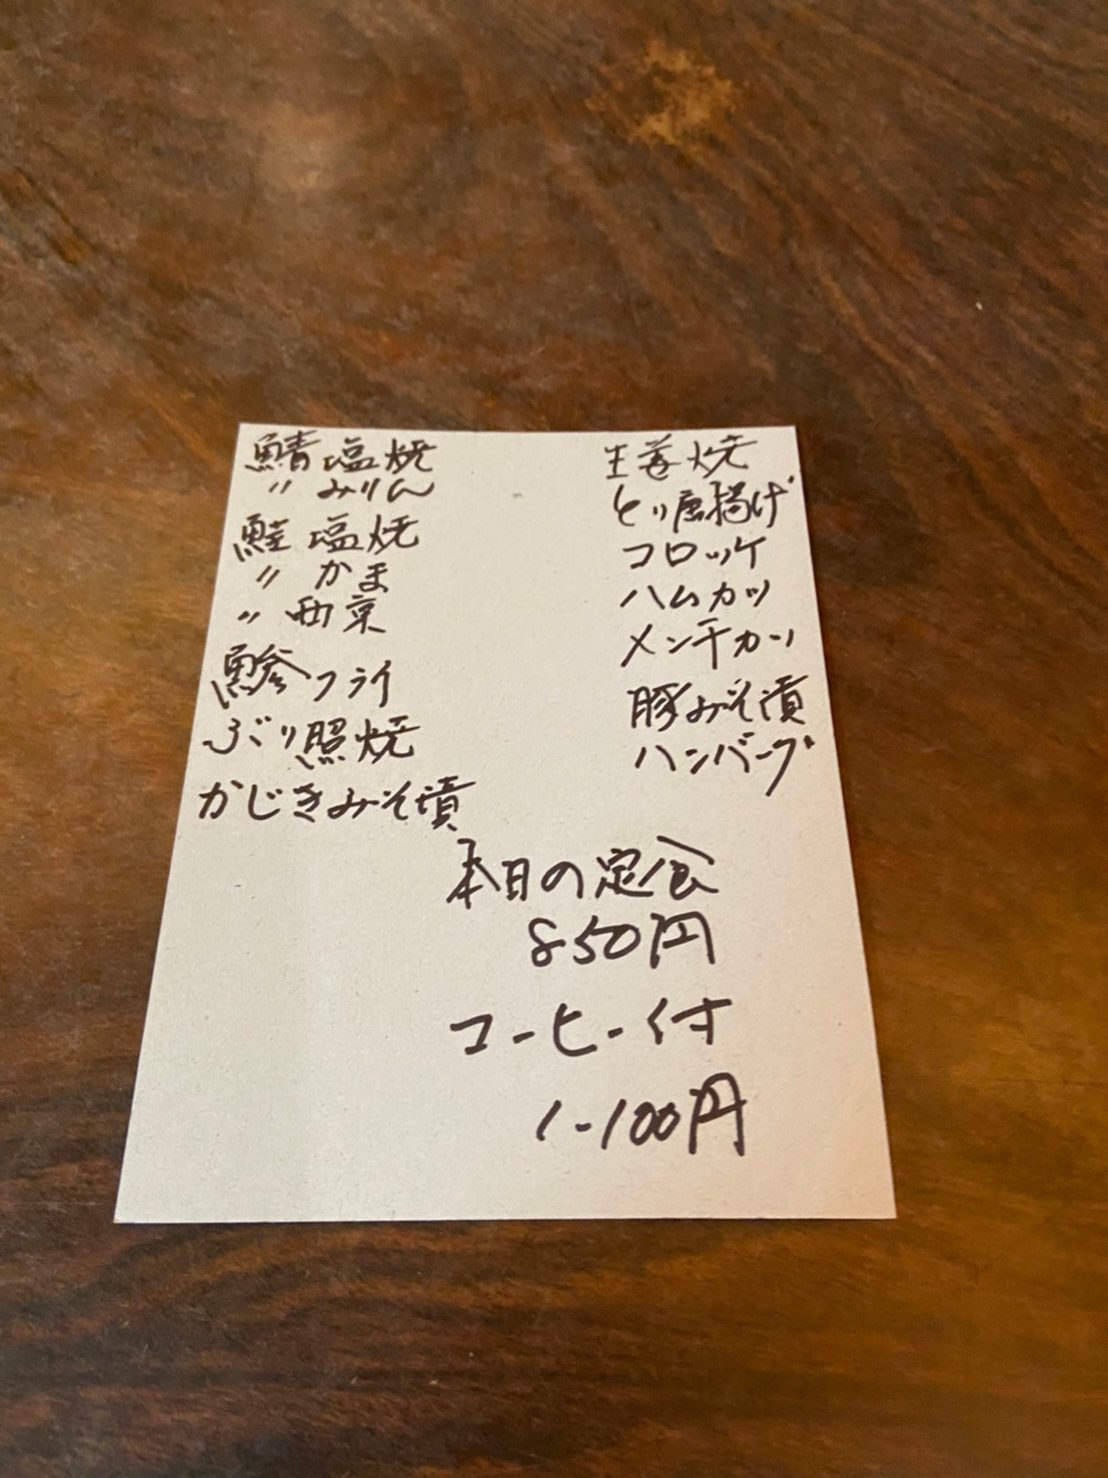 鯖塩焼
〃 みりん
鮭塩焼
〃 かま
〃 西京
鯵フライ
ぶり照焼
かじきみそ漬
生姜焼
とり唐揚げ
コロッケ
ハムカツ
メンチカツ
豚みそ漬
ハンバーグ
本日の定食
850円
コーヒー付
1-100円